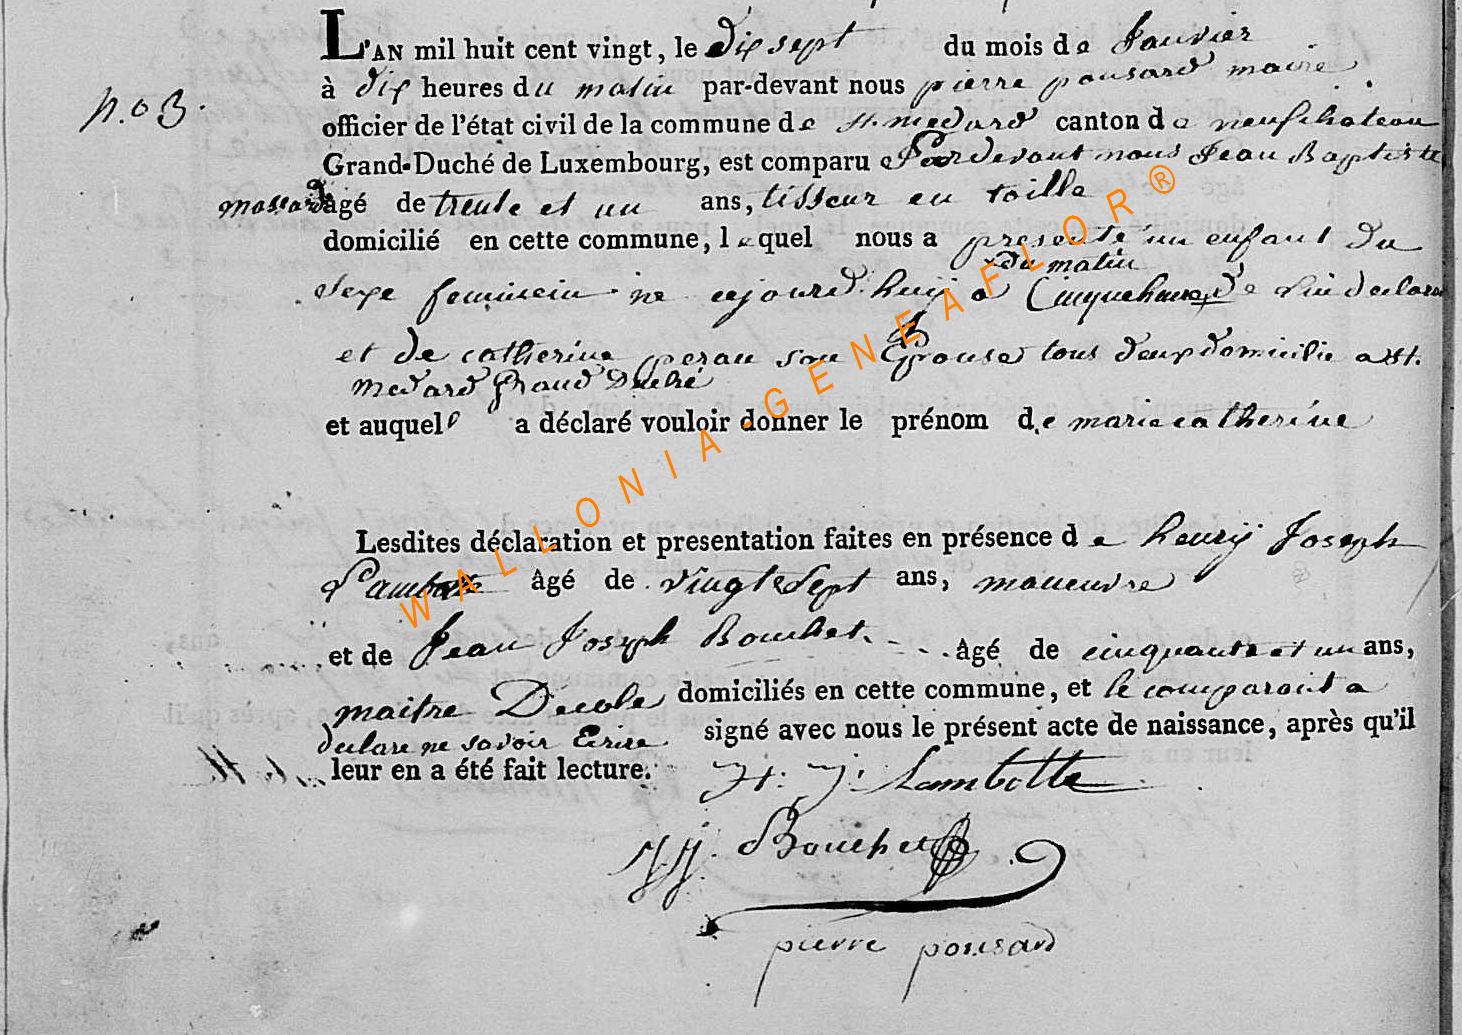 L'AN mil huit cent vingt, le dix sept du mois de Janvier
à dix heures du matin par-devant nous pierre ponsard maire
n.o 3.
officier de l'état civil de la commune de st. medard canton de neufchateau
Grand-Duché de Luxembourg, est comparu Pardevant nous Jean Baptiste
massard âgé de trente et un ans, tisseur en toille
domicilié en cette commune, lequel nous a presenté un enfant du
du matin
Sexe feminin né cejourd'huij a Cinq heures de lui declarant
et de catherine son Epouse tous deux domicilié a st.
medard grand Duché
et auquel a déclaré vouloir donner le prénom de marie catherine
Lesdites déclaration et presentation faites en présence de henrij Joseph
Lambotte âgé de vingt Sept ans, maneuvre
et de Jean Joseph Bouchet âgé de cinquante et un ans,
maitre Decole domiciliés en cette commune, et le comparant a
declare ne savoir Ecrire signé avec nous le présent acte de naissance, après qu'il
leur en a été fait lecture. H. J. Lambotte
JJ. Bouchet
pierre ponsard
WALLONIA-GENEAFLOR®